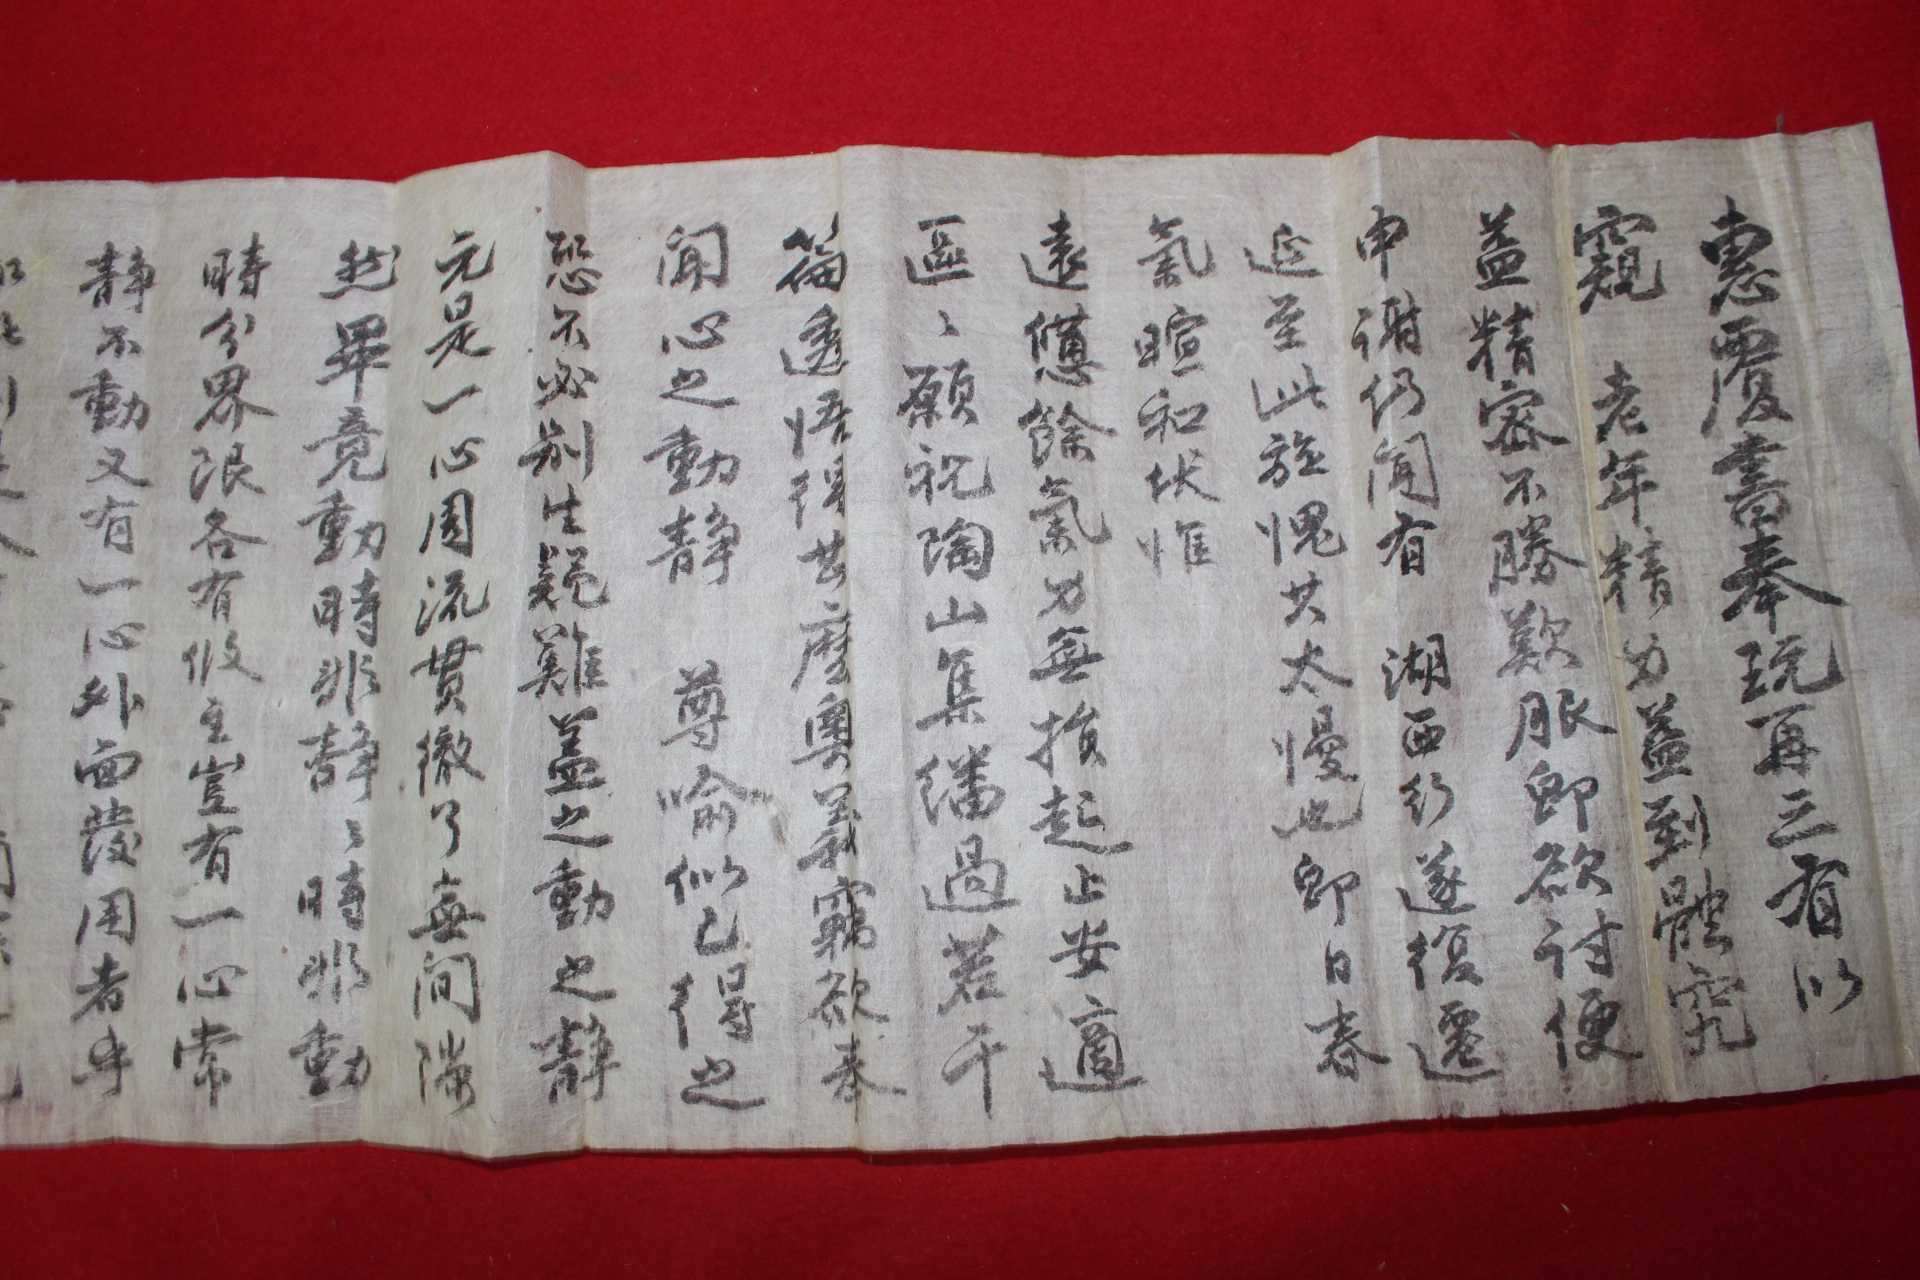 惠覆書奉玩再三有以
窺 老年精力益到體究
益精密不勝歎服卽欲討便
申謝仍聞有 湖西行遂復遷
延至此旋愧共太慢也卽日春
氣暄和伏惟
遠憊餘氣力無損起止安適
區〻願祝陶山集繙過若干
篇透悟得甚麽奧義竊欲奉
聞心之動靜 尊喩似已得之
恐不必別生疑難蓋之動之靜
元是一心周流貫徹了無間隙
然畢竟動時非靜〻時非動
時分界限各有攸主豈有一心常
靜不動又有一心外面發用者乎